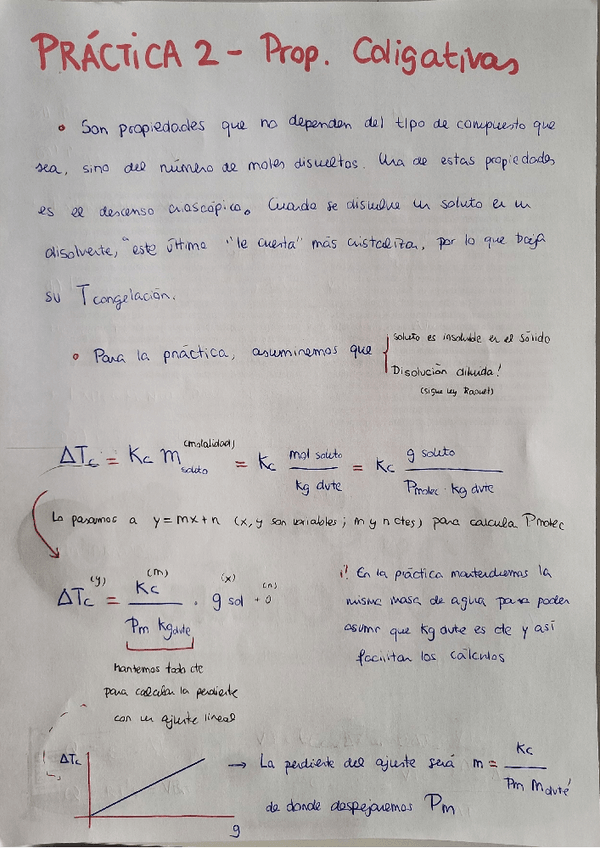 PRÁCTICA 2 - Prop. Coligativas
• Son propiedades que no dependen del tipo de compuesto que
sea, sino del número de moles disueltos. Una de estas propiedades
es el descenso crioscópico. Cuando se disuelve un soluto en un
disolvente, "este último "le cuesta" más cristalizar, por lo que baja
su T congelación.
• Para la práctica, asumiremos que { soluto es insoluble en el sólido
Disolución diluida!
(sigue ley Raoult)
ΔTc = Kc m soluto (molalidad) = Kc mol soluto / kg dvte = Kc g soluto / Pmolec · kg dvte
Lo pasamos a y = mx + n (x, y son variables; m y n ctes) para calcular Pmolec
ΔTc (y) = Kc (m) / Pm kg dvte · g sol (x) + 0 (n)
¡! En la práctica mantendremos la
misma masa de agua para poder
asumir que kg dvte es cte y así
facilitar los cálculos
Mantenemos todo cte
para calcular la pendiente
con un ajuste lineal
ΔTc
g
→ La pendiente del ajuste será m = Kc / Pm mdvte'
de donde despejaremos Pm